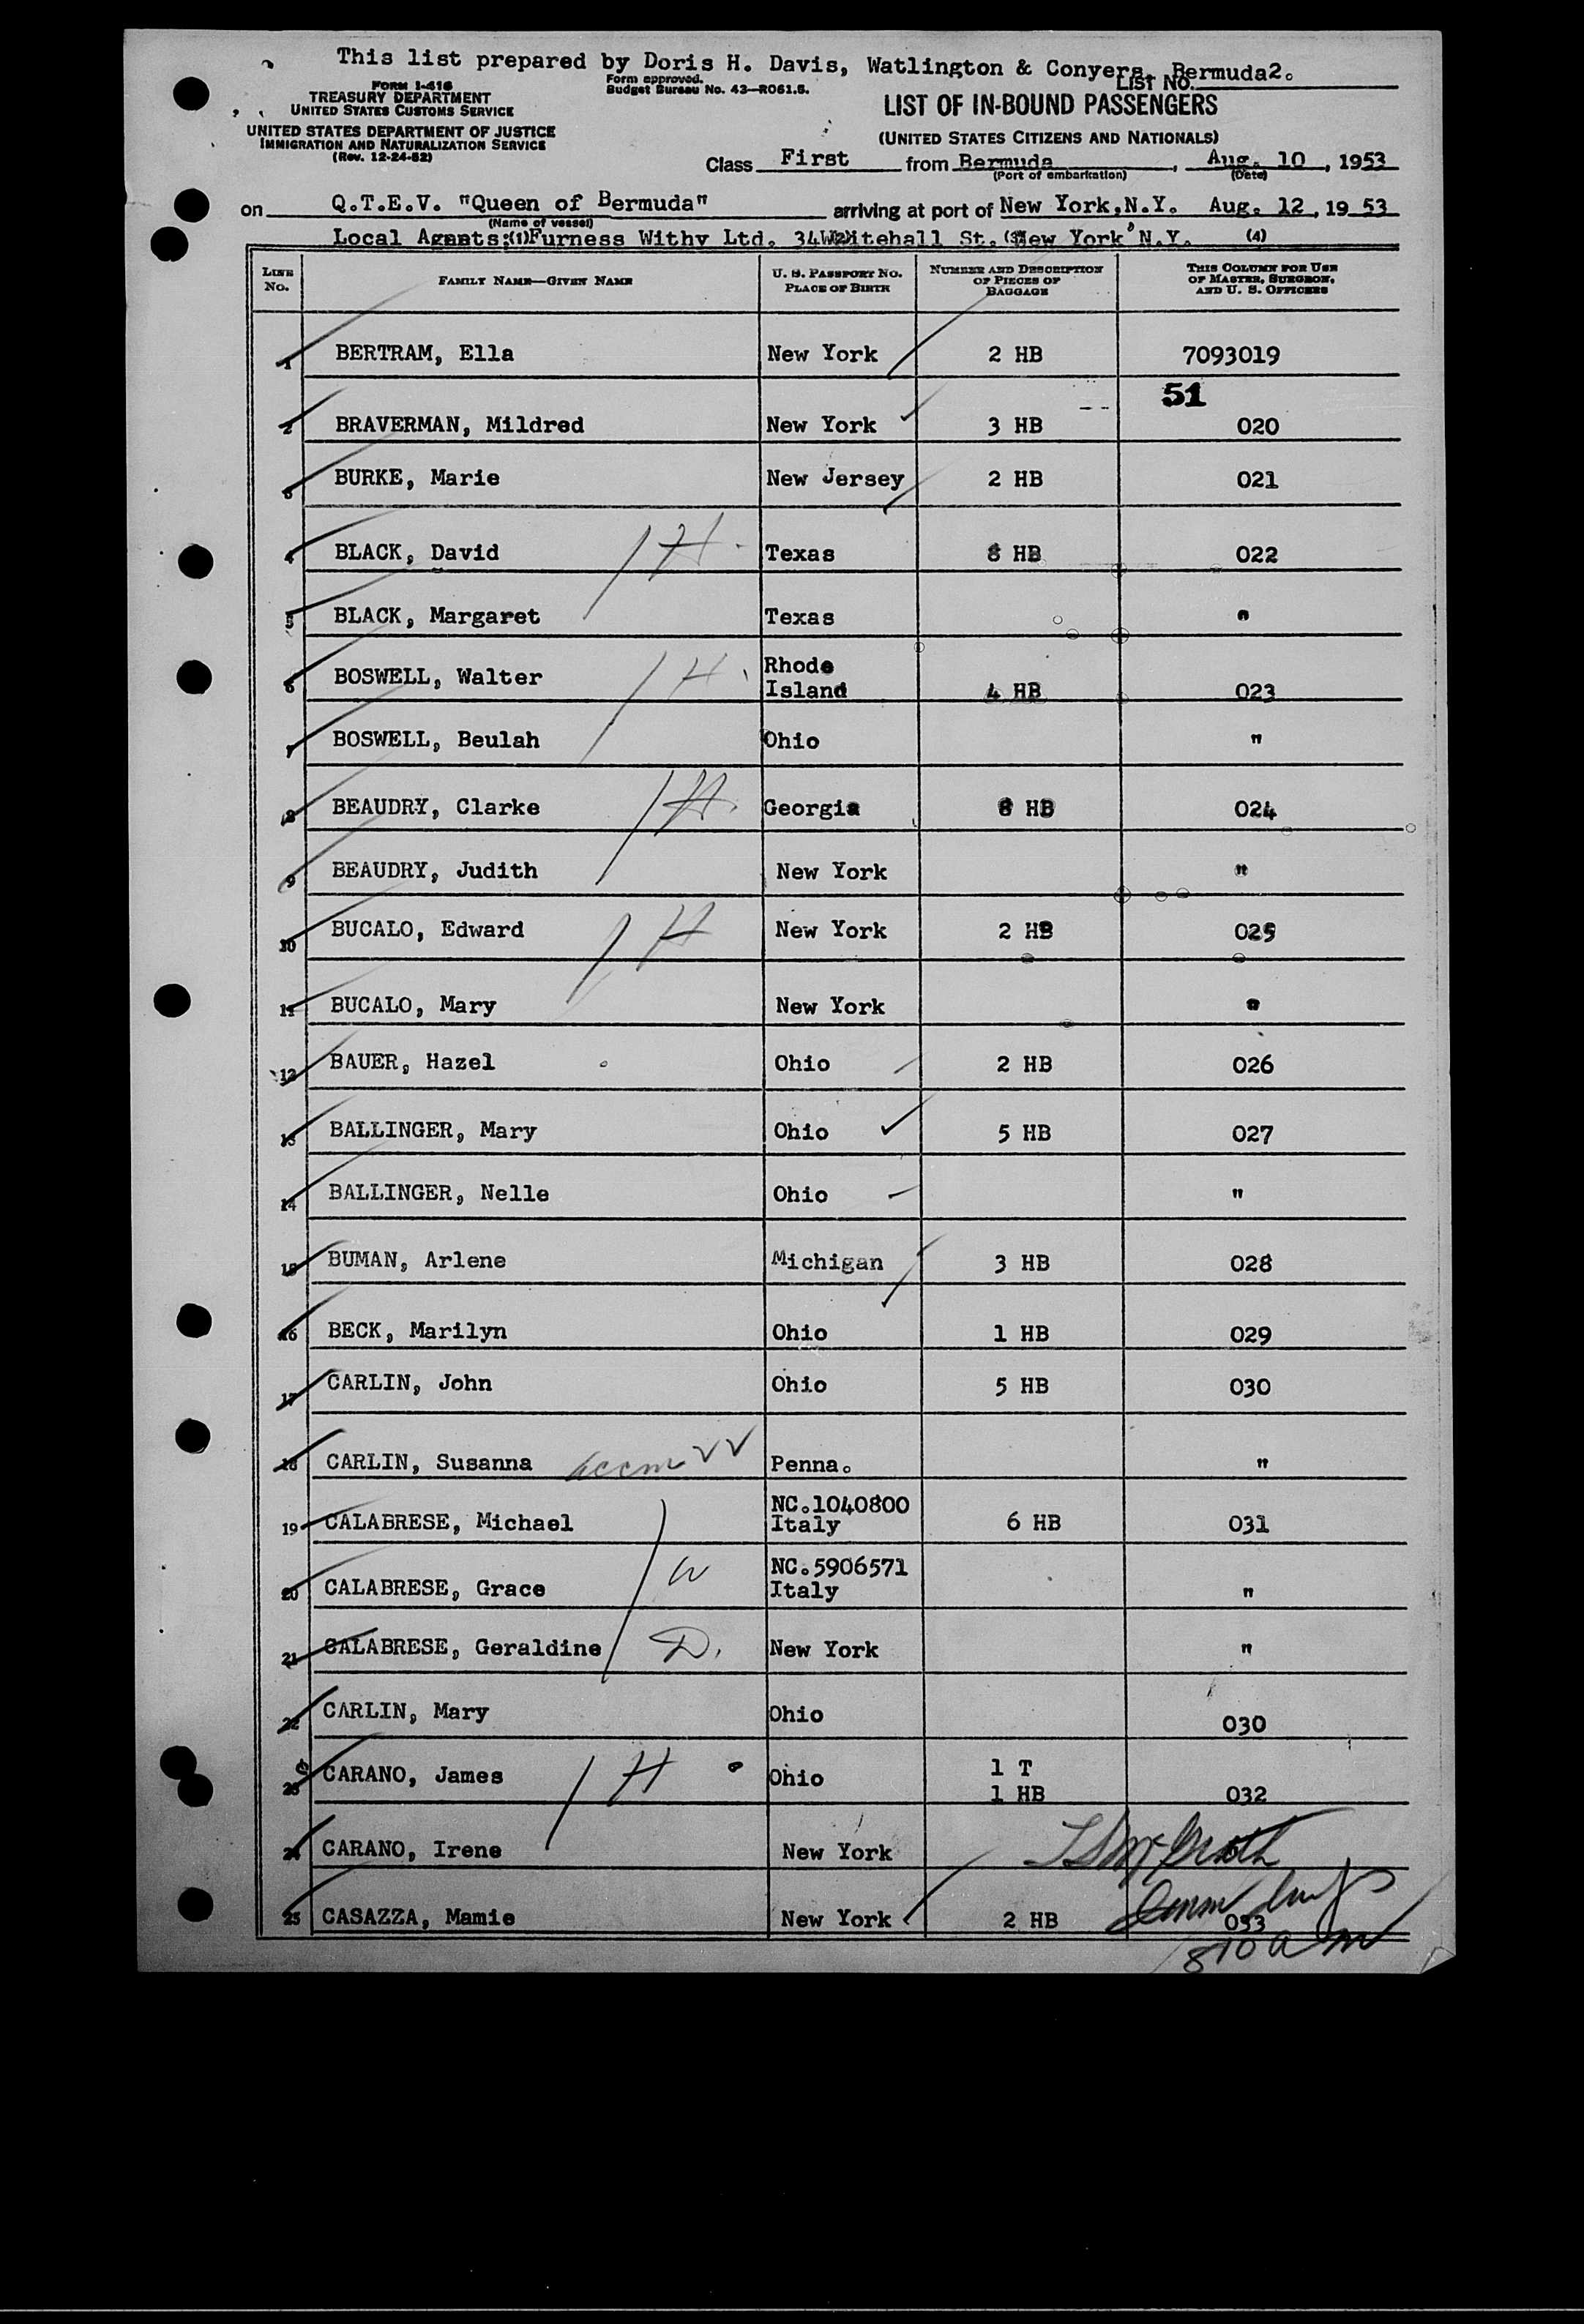 This list prepared by Doris H. Davis, Watlington & Conyers, Bermuda
List No. 2.
Form I-416
TREASURY DEPARTMENT
UNITED STATES CUSTOMS SERVICE
UNITED STATES DEPARTMENT OF JUSTICE
IMMIGRATION AND NATURALIZATION SERVICE
(Rev. 12-24-52)
Form approved.
Budget Bureau No. 43—R061.5.
LIST OF IN-BOUND PASSENGERS
(UNITED STATES CITIZENS AND NATIONALS)
Class First from Bermuda, Aug. 10, 1953
(Port of embarkation) (Date)
on Q.T.E.V. "Queen of Bermuda" arriving at port of New York, N.Y. Aug. 12, 1953
(Name of vessel)
Local Agents: (1) Furness Withy Ltd. 34 Whitehall St. (3) New York N.Y. (4)
LINE No. FAMILY NAME—GIVEN NAME U. S. PASSPORT NO. PLACE OF BIRTH NUMBER AND DESCRIPTION OF PIECES OF BAGGAGE THIS COLUMN FOR USE OF MASTER, SURGEON, AND U. S. OFFICERS
1 BERTRAM, Ella New York 2 HB 7093019
51
2 BRAVERMAN, Mildred New York 3 HB 020
3 BURKE, Marie New Jersey 2 HB 021
4 BLACK, David 1 H. Texas HB 022
5 BLACK, Margaret Texas "
6 BOSWELL, Walter 1 H. Rhode Island 4 HB 023
7 BOSWELL, Beulah Ohio "
8 BEAUDRY, Clarke 1 H. Georgia HB 024
9 BEAUDRY, Judith New York "
10 BUCALO, Edward 1 H New York 2 HB 025
11 BUCALO, Mary New York "
12 BAUER, Hazel Ohio 2 HB 026
13 BALLINGER, Mary Ohio 5 HB 027
14 BALLINGER, Nelle Ohio "
15 BUMAN, Arlene Michigan 3 HB 028
16 BECK, Marilyn Ohio 1 HB 029
17 CARLIN, John Ohio 5 HB 030
18 CARLIN, Susanna Penna. "
19 CALABRESE, Michael NC.1040800 Italy 6 HB 031
20 CALABRESE, Grace W NC.5906571 Italy "
21 CALABRESE, Geraldine D. New York "
22 CARLIN, Mary Ohio 030
23 CARANO, James 1 H Ohio 1 T 1 HB 032
24 CARANO, Irene New York
25 CASAZZA, Mamie New York 2 HB 033
810 am